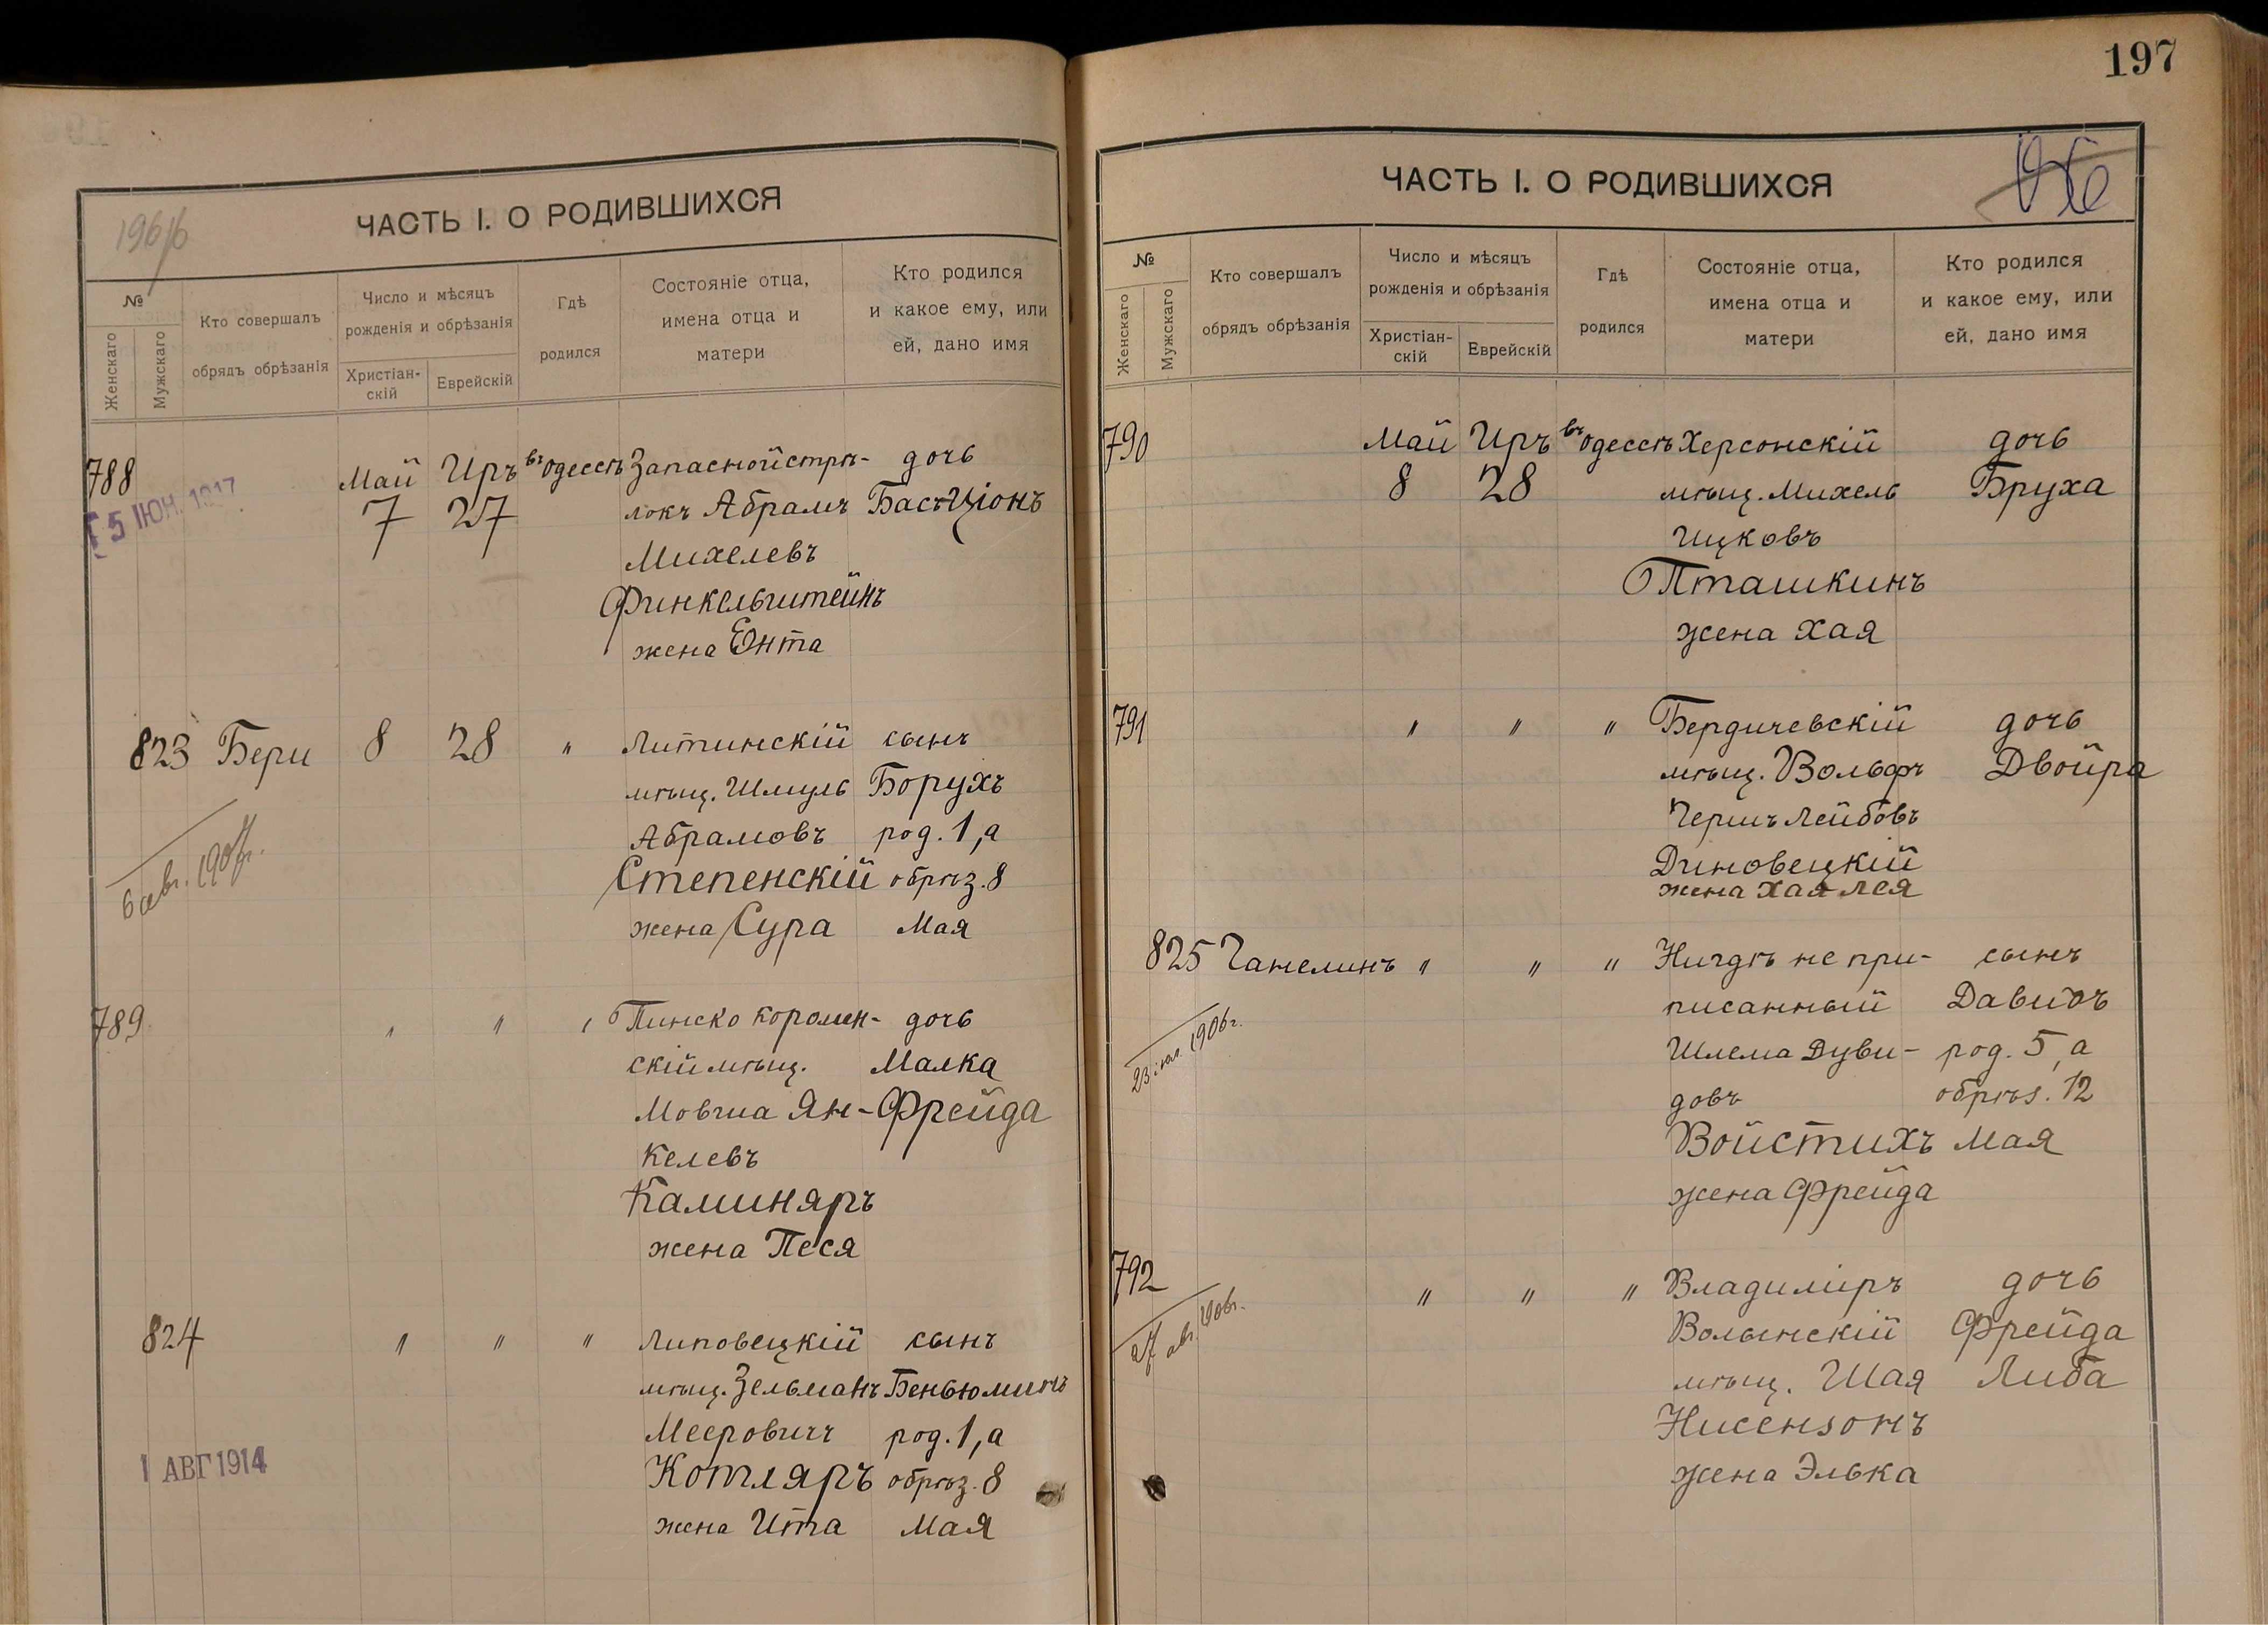 197
ЧАСТЬ I. О РОДИВШИХСЯ
№
Женскаго
Мужскаго
Кто совершалъ
обрядъ обрѣзанія
Число и мѣсяцъ
рожденія и обрѣзанія
Христіан-
скій
Еврейскій
Гдѣ
родился
Состояніе отца,
имена отца и
матери
Кто родился
и какое ему, или
ей, дано имя
788 Май Иръ въ Одессѣ Запасной стрѣ- дочь
7 27 локъ Абрамъ Басъ-Ціонъ
5 ІЮН. 1917
Михелевъ
Финкельштейнъ
жена Ента
823 Бери 8 28 " Литинскій сынъ
мѣщ. Шмуль Борухъ
Абрамовъ род. 1, а
Степенскій обрѣз. 8
жена Сура Мая
6 авг. 1907г.
789 " " " Пинско Коромен- дочь
скій мѣщ. Малка
Мовша Ян- Фрейда
келевъ
Каминяръ
жена Песя
824 " " " Липовецкій сынъ
мѣщ. Зельманъ Беньюминъ
Мееровичъ род. 1, а
Котляръ обрѣз. 8
жена Ита Мая
1 АВГ 1914
ЧАСТЬ I. О РОДИВШИХСЯ
№
Женскаго
Мужскаго
Кто совершалъ
обрядъ обрѣзанія
Число и мѣсяцъ
рожденія и обрѣзанія
Христіан-
скій
Еврейскій
Гдѣ
родился
Состояніе отца,
имена отца и
матери
Кто родился
и какое ему, или
ей, дано имя
790 Май Иръ въ Одессѣ Херсонскій дочь
8 28 мѣщ. Михель Бруха
Ицковъ
Пташкинъ
жена Хая
791 " " " Бердичевскій дочь
мѣщ. Вольфъ Двойра
Гершъ Лейбовъ
Диновецкій
жена Хая Лея
825 Ганелинъ " " " Нигдѣ не при- сынъ
писанный Давидъ
Шлема Дуви- род. 5, а
довъ обрѣз. 12
Войстихъ Мая
жена Фрейда
23 іюл. 1906г.
792 " " " Владиміръ дочь
Волынскій Фрейда
мѣщ. Шая Либа
Нисензонъ
жена Элька